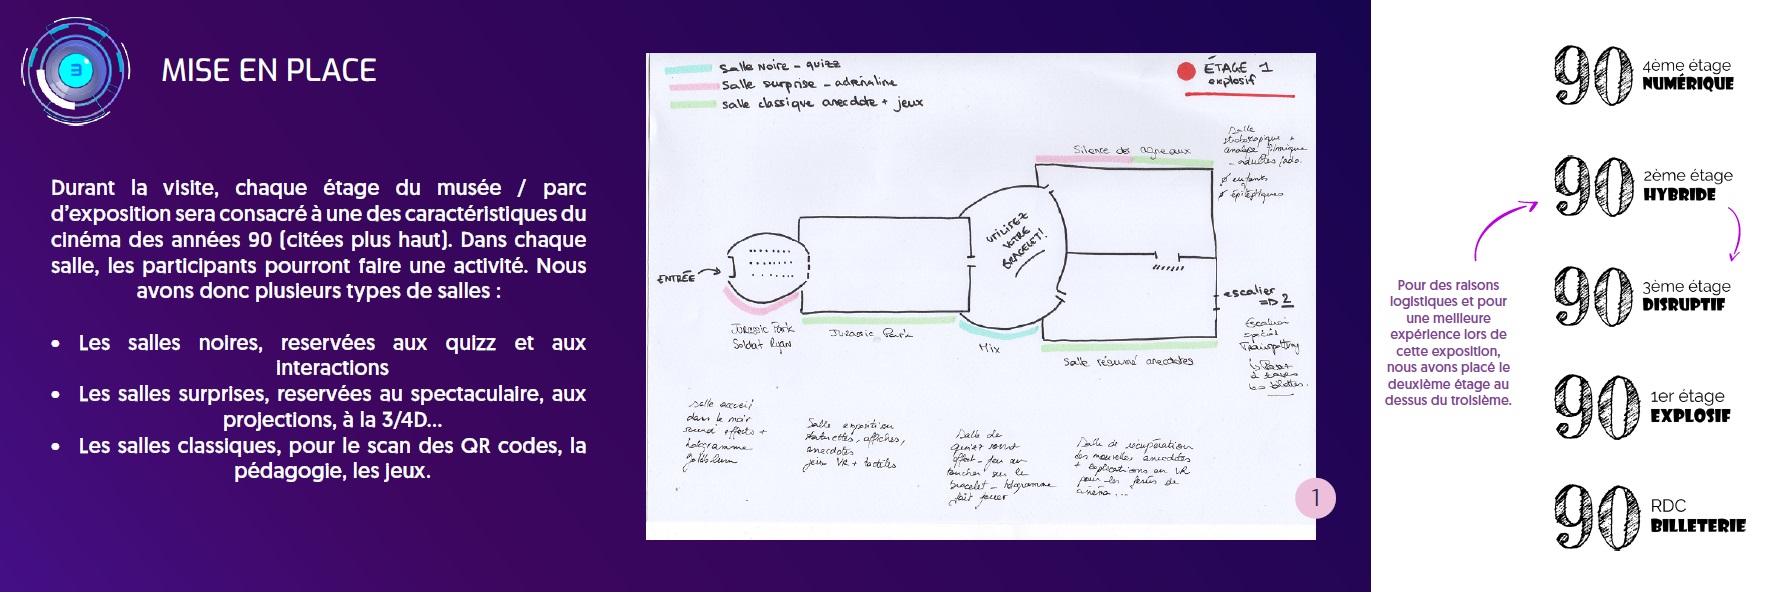 3
MISE EN PLACE
Durant la visite, chaque étage du musée / parc
d'exposition sera consacré à une des caractéristiques du
cinéma des années 90 (citées plus haut). Dans chaque
salle, les participants pourront faire une activité. Nous
avons donc plusieurs types de salles :
• Les salles noires, reservées aux quizz et aux
interactions
• Les salles surprises, reservées au spectaculaire, aux
projections, à la 3/4D...
• Les salles classiques, pour le scan des QR codes, la
pédagogie, les jeux.
Salle Noire - quizz
Salle surprise - adrénaline
Salle classique anecdote + jeux
ÉTAGE 1
explosif
Silence des agneaux
Salle
stroboscopique +
analyse filmique
- adultes/ado.
Ø enfants
Ø épileptiques
UTILISEZ
VOTRE
BRACELET!
ENTRÉE
escalier
=D 2
Escalier
spécial
Trainspotting
Jurassic Park
Soldat Ryan
Jurassic Park
Mix
Salle résumé anecdotes
Salle accueil
dans le noir
sound effects +
hologramme
Goldblum
Salle exposition
statuettes, affiches,
anecdotes
jeux VR + tactiles
Salle de
quizz sound
effect - feu au
toucher sur le
bracelet - hologramme
fait jouer
Salle de récupération
des nouvelles anecdotes
+ explications en VR
pour les férus de
cinéma...
1
Pour des raisons
logistiques et pour
une meilleure
expérience lors de
cette exposition,
nous avons placé le
deuxième étage au
dessus du troisième.
90 4ème étage
NUMÉRIQUE
90 2ème étage
HYBRIDE
90 3ème étage
DISRUPTIF
90 1er étage
EXPLOSIF
90 RDC
BILLETERIE